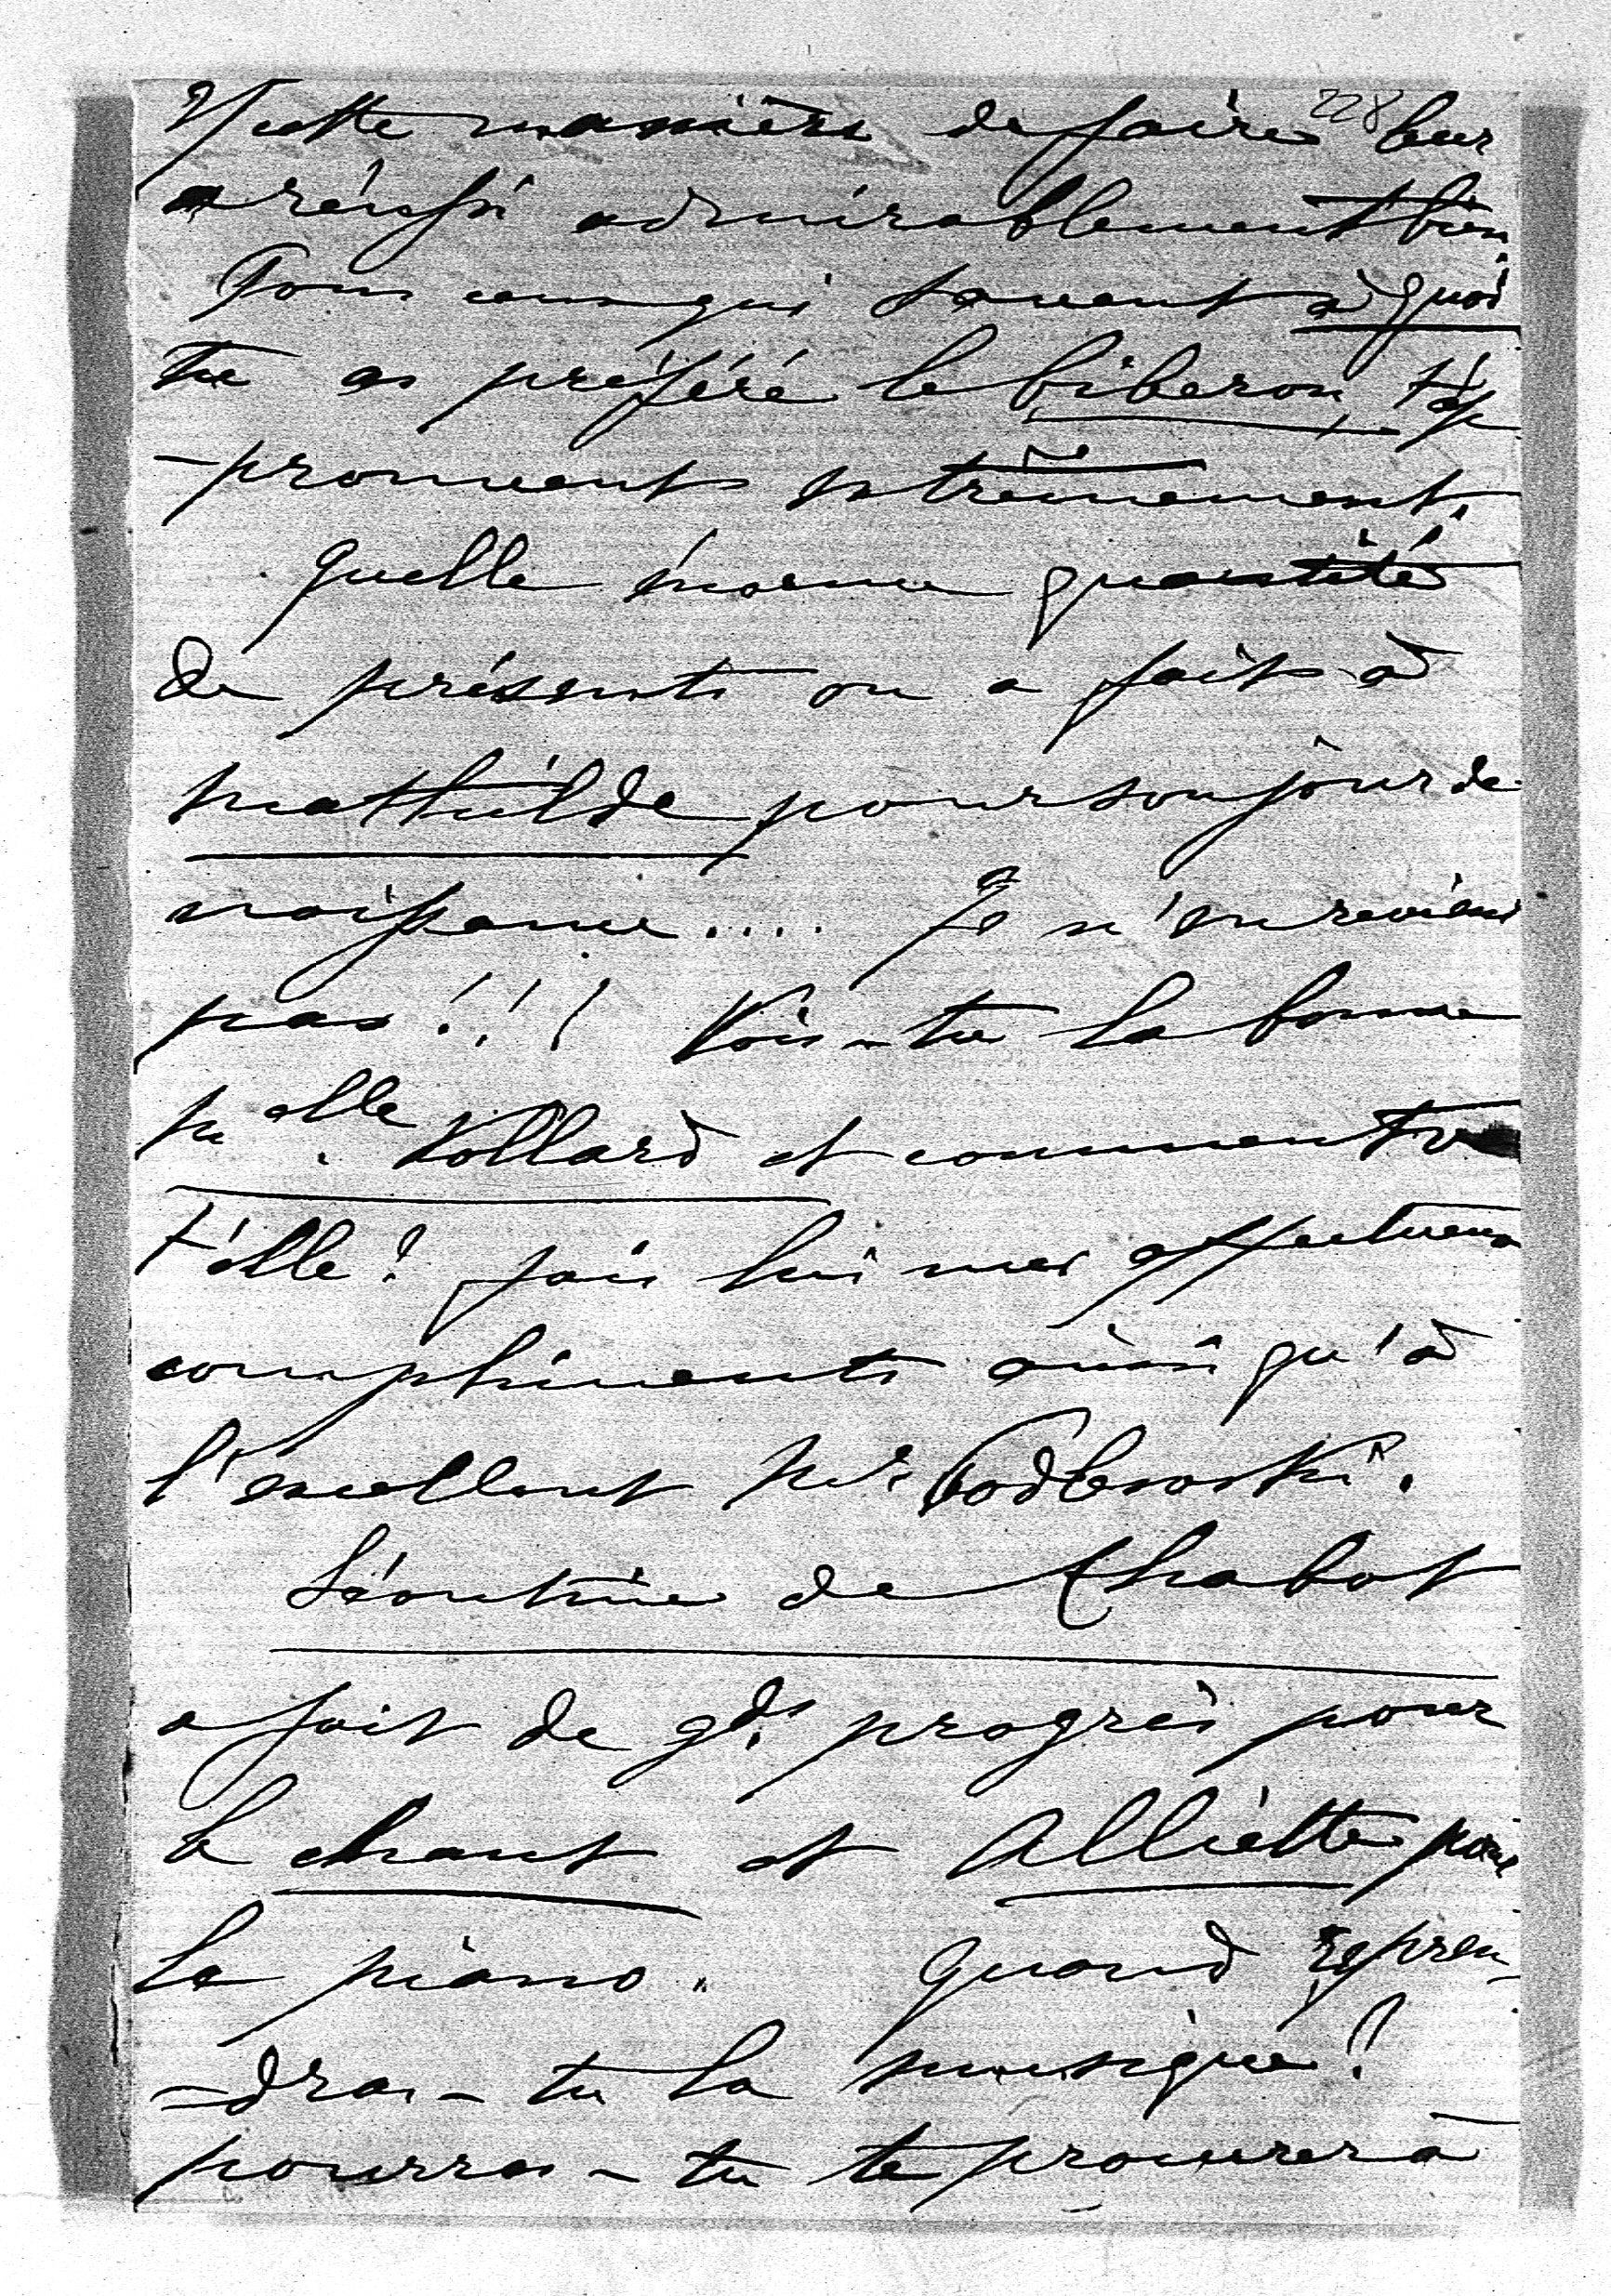 228
cette manière de faire leur
a réussi admirablement bien.
Tous ceux qui savent à quoi
tu as préféré le biberon, t'ap
-prouvent extrêmement.
Quelle énorme quantité
de présents on a faits à
Mathilde pour son jour de
naissance.... Je n'en reviens
pas!!! Vois-tu la bonne
Melle Vollard et comment va
t'elle? fais lui mes affectueux
compliments ainsi qu'à
l'excellent Mr
Léontine de Chabot
a fait de gds progrès pour
le chant et Alliette pour
le piano. Quand repren
-dras-tu la musique?
pourras-tu te procurer à